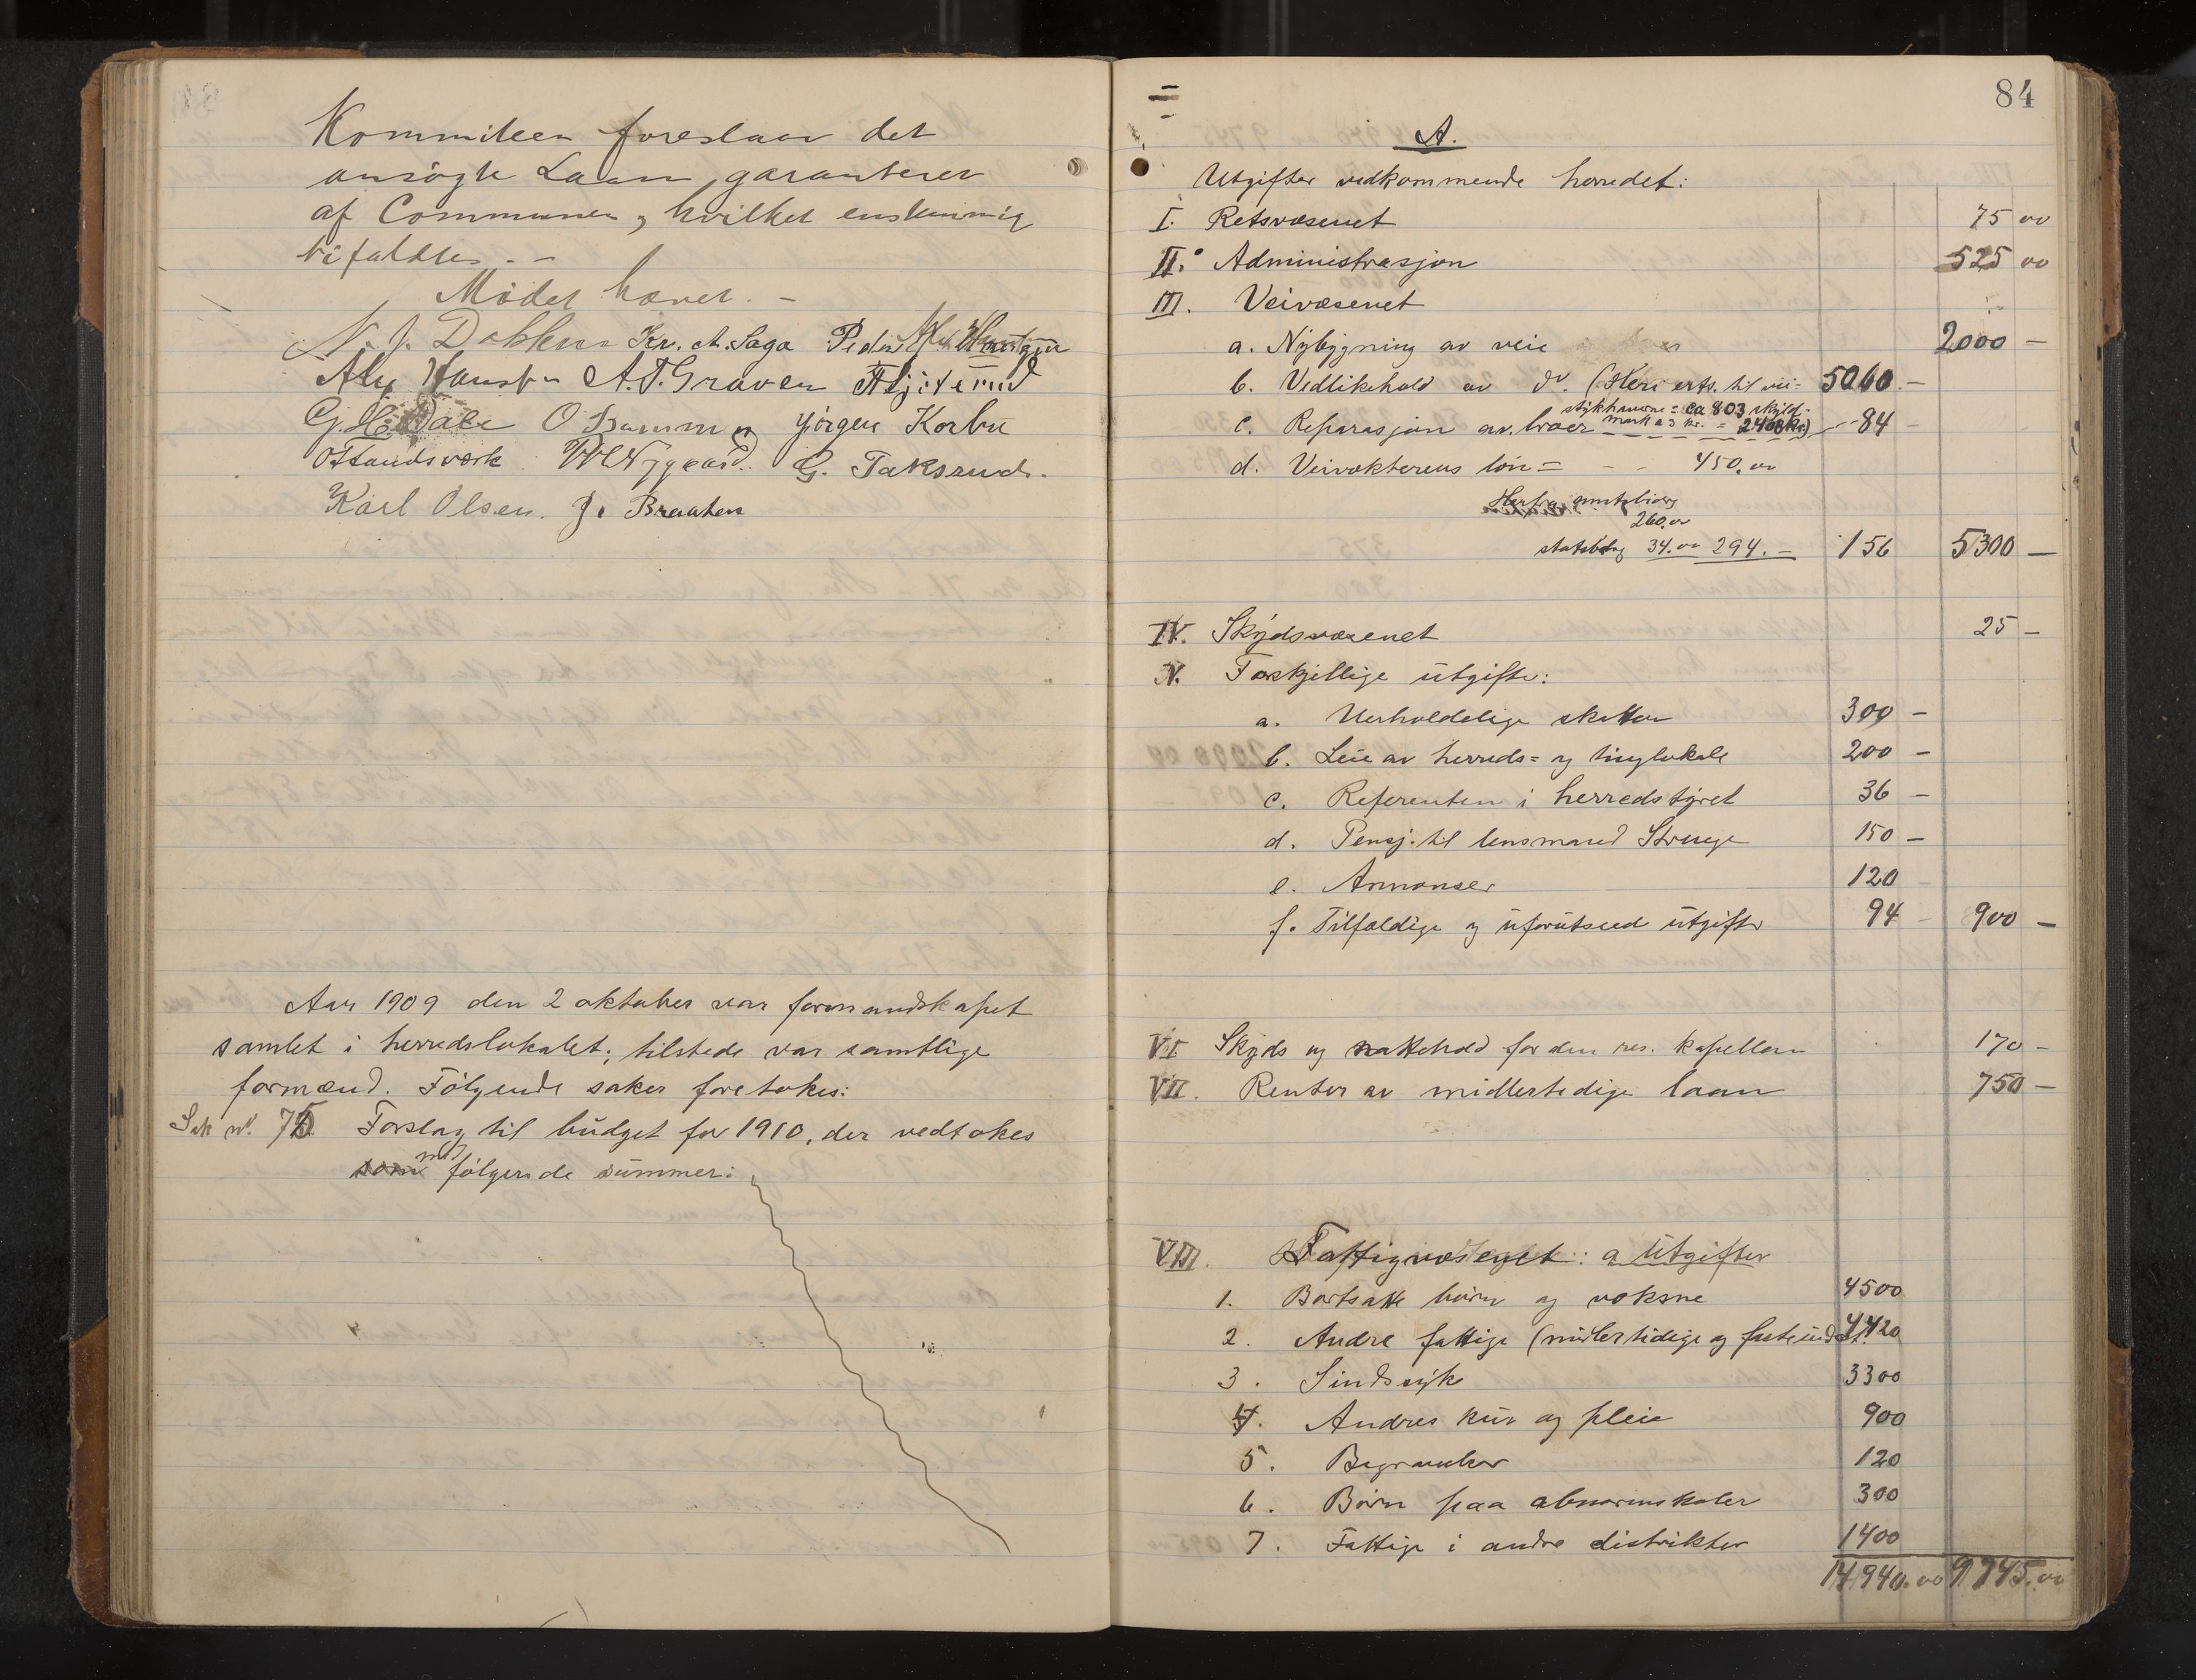 Kommiteen foreslaar det
ansögte Laan garanteret
af Communen, hvilket enstemmig
bifaldtes. –
Mödet hævet. –
N. J. Dokken Kr. A. Saga Peder
Alex Hansen A. T. Graven
G. H. Dale O Jörgen Korbu
O Landsværk G. Taksrud.
Karl Olsen. J. Braaten
Aar 1909 den 2 oktober var formandskapet
samlet i herredslokalet; tilstede var samtlige
formænd. Følgende saker foretokes:
Sak nr. 75 Forslag til budget for 1910, der vedtokes
som med følgende summer:
84
A.
Utgifter vedkommende herredet:
I. Retsvæsenet 75 00
II. Administrasjon 525 00
III. Veivæsenet
a. Nybygning av veie 2000 –
b. Vedlikehold av do. (Heri erts. til vei= 5060 –
stykhaverne = ca 803 skyld-
c. Reparasjon av broer mark a 3 kr. = 2408 kr.) 84
d. Veivokterens løn = – – 450.00
Herfra amtsbidrag
260.00
statsbidrag 34.00 294. – 156 5300 –
IV. Skydsvæsenet 25 –
V. Forskjellige utgifter:
a. Uerholdelige skatter 300 –
b. Leie av herreds= og tinglokale 200 –
c. Referenten i herredstyret 36 –
d. Pensj. til lensmand Struge 150 –
e. Annonser 120
f. Tilfældige og uforutseed utgifter 94 – 900 –
VI Skyds og nattehold for den res. kapellan 170 –
VII. Renter av midlertedige laan 750 –
VIII. Fattigvæsenet: a Utgifter
1. Bortsatte børn og voksne 4500
2. Andre fattige (midlertidige og fasteund.) 4420
3. Sindssyke 3300
4. Andres kur og pleie 900
5. Begravelser 120
6. Børn paa abnormskoler 300
7. Fattige i andre distrikter 1400
14940.00 9745.00